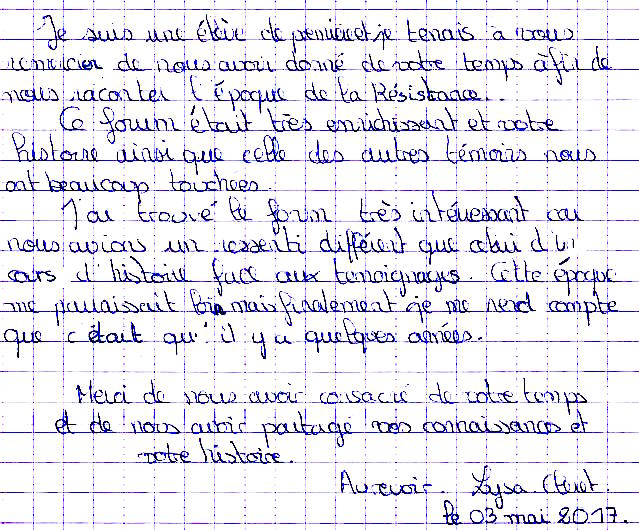 Je suis une élève de première et je tenais à vous
remercier de nous avoir donné de votre temps afin de
nous raconter l'époque de la Résistance.
Ce forum était très enrichissant et votre
histoire ainsi que celle des autres témoins nous
ont beaucoup touchées.
J'ai trouvé le forum très intéressant car
nous avions un ressenti différent que celui d'un
cours d'histoire face aux temoignages. Cette époque
me paraissait loin mais finalement je me rend compte
que c'était qu'il y a quelques années.
Merci de nous avoir consacré de votre temps
et de nous avoir partagé vos connaissances et
votre histoire.
Au revoir. Lysa
le 03 mai 2017.